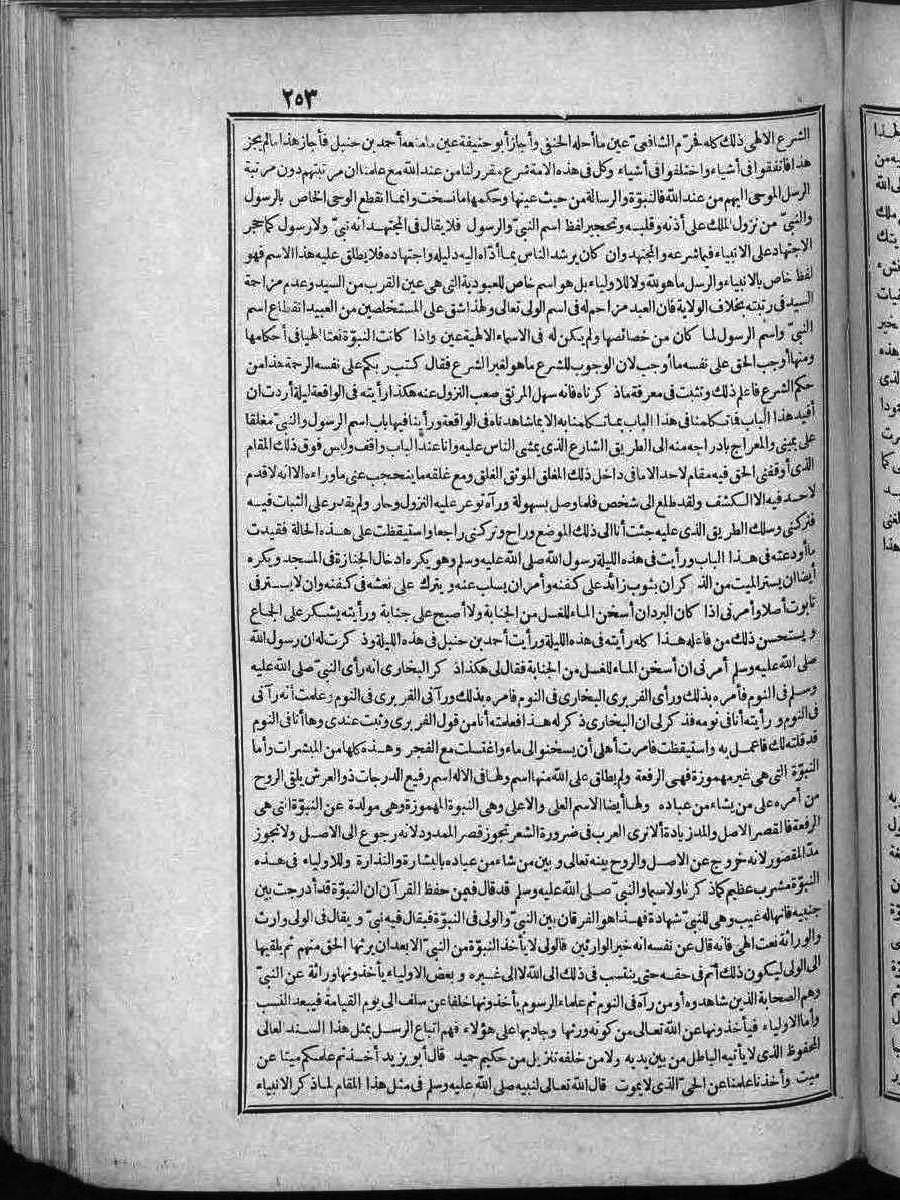 ٢٥٣
الشرع الالهى ذلك كله فحرّم الشافعى عين ما أحله الحنفى وأجاز أبو حنيفة عين ما منعه أحمد بن حنبل فأجاز هذا ما لم يجز
هذا فاتفقوا فى أشياء واختلفوا فى أشياء وكل فى هذه الامة شرع مقرر لنا من عند الله مع علمنا ان مرتبتهم دون مرتبة
الرسل الموحى اليهم من عند الله فالنبوّة والرسالة من حيث عينها وحكمها ما نسخت وانما انقطع الوحى الخاص بالرسول
والنبىّ من نزول الملك على أذنه وقلبه وتحجير لفظ اسم النبىّ والرسول فلا يقال فى المجتهد انه نبىّ ولا رسول كما حجر
الاجتهاد على الانبياء فيما شرعه والمجتهد وان كان يرشد الناس بما أدّاه اليه دليله واجتهاده فلا يطلق عليه هذا الاسم فهو
لفظ خاص بالانبياء والرسل ما هو لله ولا للاولياء بل هو اسم خاص للعبودية التى هى عين القرب من السيد وعدم مزاحمة
السيد فى رتبته بخلاف الولاية فان العبد مزاحم له فى اسم الولى تعالى ولهذا شق على المستخلصين من العبيد انقطاع اسم
النبىّ واسم الرسول لما كان من خصائصها ولم يكن له فى الاسماء الالهية عين واذا كانت النبوّة نعتا الهيا فى أحكامها
ومنها أوجب الحق على نفسه ما أوجب لان الوجوب للشرع ما هو لغير الشرع فقال كتب ربكم على نفسه الرحمة هذا من
حكم الشرع فاعلم ذلك وتثبت فى معرفة ماذكرناه فانه سهل المرتقى صعب النزول عنه هكذا رأيته فى الواقعة ليلة أردت ان
أقيد هذا الباب فانكلمنا فى هذا الباب بما تكلمنا به الا بما شاهدناه فى الواقعة ورأينا فيها باب اسم الرسول والنبىّ مغلقا
على يمينى والمعراج بادراجه منه الى الطريق الشارع الذى يمشى الناس عليه وانا عند الباب واقف وليس فوق ذلك المقام
الذى أوقفنى الحق فيه مقام لاحد الا ما فى داخل ذلك المغلق الموثق الغلق ومع غلقه ما ينحجب عنى ما وراءه الا انه لا قدم
لاحد فيه الا الكشف ولقد طلع الى شخص فلما وصل بسهولة ورآه توعر عليه النزول وحار ولم يقدر على الثبات فيه
فتركنى وسلك الطريق الذى عليه جئت أنا الى ذلك الموضع وراح وتركنى راجعا واستيقظت على هذه الحالة فقيدت
ما أودعته فى هذا الباب ورأيت فى هذه الليلة رسول الله صلى الله عليه وسلم وهو يكره ادخال الجنازة فى المسجد ويكره
أيضا ان يستر الميت من الذكران بثوب زائد على كفنه وأمر ان يسلب عنه ويترك على نعشه فى كفنه وان لا يستر فى
تابوت أصلا وأمرنى اذا كان البردان أسخن الماء للغسل من الجنابة ولا أصبح على جنابة ورأيته يشكر على الجماع
ويستحسن ذلك من فاعله هذا كله رأيته فى هذه الليلة ورأيت أحمد بن حنبل فى هذه الليلة وذكرت له ان رسول الله
صلى الله عليه وسلم أمرنى ان أسخن الماء للغسل من الجنابة فقال لى هكذا ذكر البخارى انه رأى النبىّ صلى الله عليه
وسلم فى النوم فأمره بذلك ورأى الفربرى البخارى فى النوم فامره بذلك ورآنى الفربرى فى النوم وعلمت أنه رآنى
فى النوم ورأيته أنا فى نومه فذكر لى ان البخارى ذكر له هذا فعلمته أنا من قول الفربرى وثبت عندى وها أنا فى النوم
قد قلته لك فاعمل به واستيقظت فامرت أهلى أن يسخنوا لى ماء واغتسلت مع الفجر وهذه كلها من المبشرات وأما
النبوّة التى هى غير مهموزة فهى الرفعة ولم يطلق على الله منها اسم ولها فى الاله اسم رفيع الدرجات ذو العرش يلقى الروح
من أمره على من يشاء من عباده ولها أيضا الاسم العلى والاعلى وهى النبوة المهموزة وهى مولدة عن النبوّة التى هى
الرفعة فالقصر الاصل والمد زيادة ألا ترى العرب فى ضرورة الشعر تجوز قصر الممدود لانه رجوع الى الاصل ولا تجوز
مدّ المقصور لانه خروج عن الاصل والروح بينه تعالى وبين من شاء من عباده بالبشارة والنذارة وللاولياء فى هذه
النبوّة مشرب عظيم كما ذكرنا ولا سيما والنبىّ صلى الله عليه وسلم قد قال فيمن حفظ القرآن ان النبوّة قد أدرجت بين
جنبيه فانها له غيب وهى للنبىّ شهادة فهذا هو الفرقان بين النبىّ والولى فى النبوّة فيقال فيه نبىّ ويقال فى الولى وارث
والوراثة نعت الهى فانه قال عن نفسه انه خير الوارثين فالولى لا يأخذ النبوّة من النبىّ الا بعد ان يرثها الحق منهم ثم يلقيها
الى الولى ليكون ذلك أتم فى حقه حتى ينتسب فى ذلك الى الله لا الى غيره وبعض الاولياء يأخذونها وراثة عن النبىّ
وهم الصحابة الذين شاهدوه أو من رآه فى النوم ثم علماء الرسوم يأخذونها خلفا عن سلف الى يوم القيامة فيبعد النسب
وأما الاولياء فيأخذونها عن الله تعالى من كونه ورثها وجاد بها على هؤلاء فهم اتباع الرسل بمثل هذا السند العالى
المحفوظ الذى لا يأتيه الباطل من بين يديه ولا من خلفه تنزيل من حكيم حميد قال أبو يزيد أخذتم علمكم ميتا عن
ميت وأخذنا علمنا عن الحىّ الذى لا يموت قال الله تعالى لنبيه صلى الله عليه وسلم فى مثل هذا المقام لما ذكر الانبياء